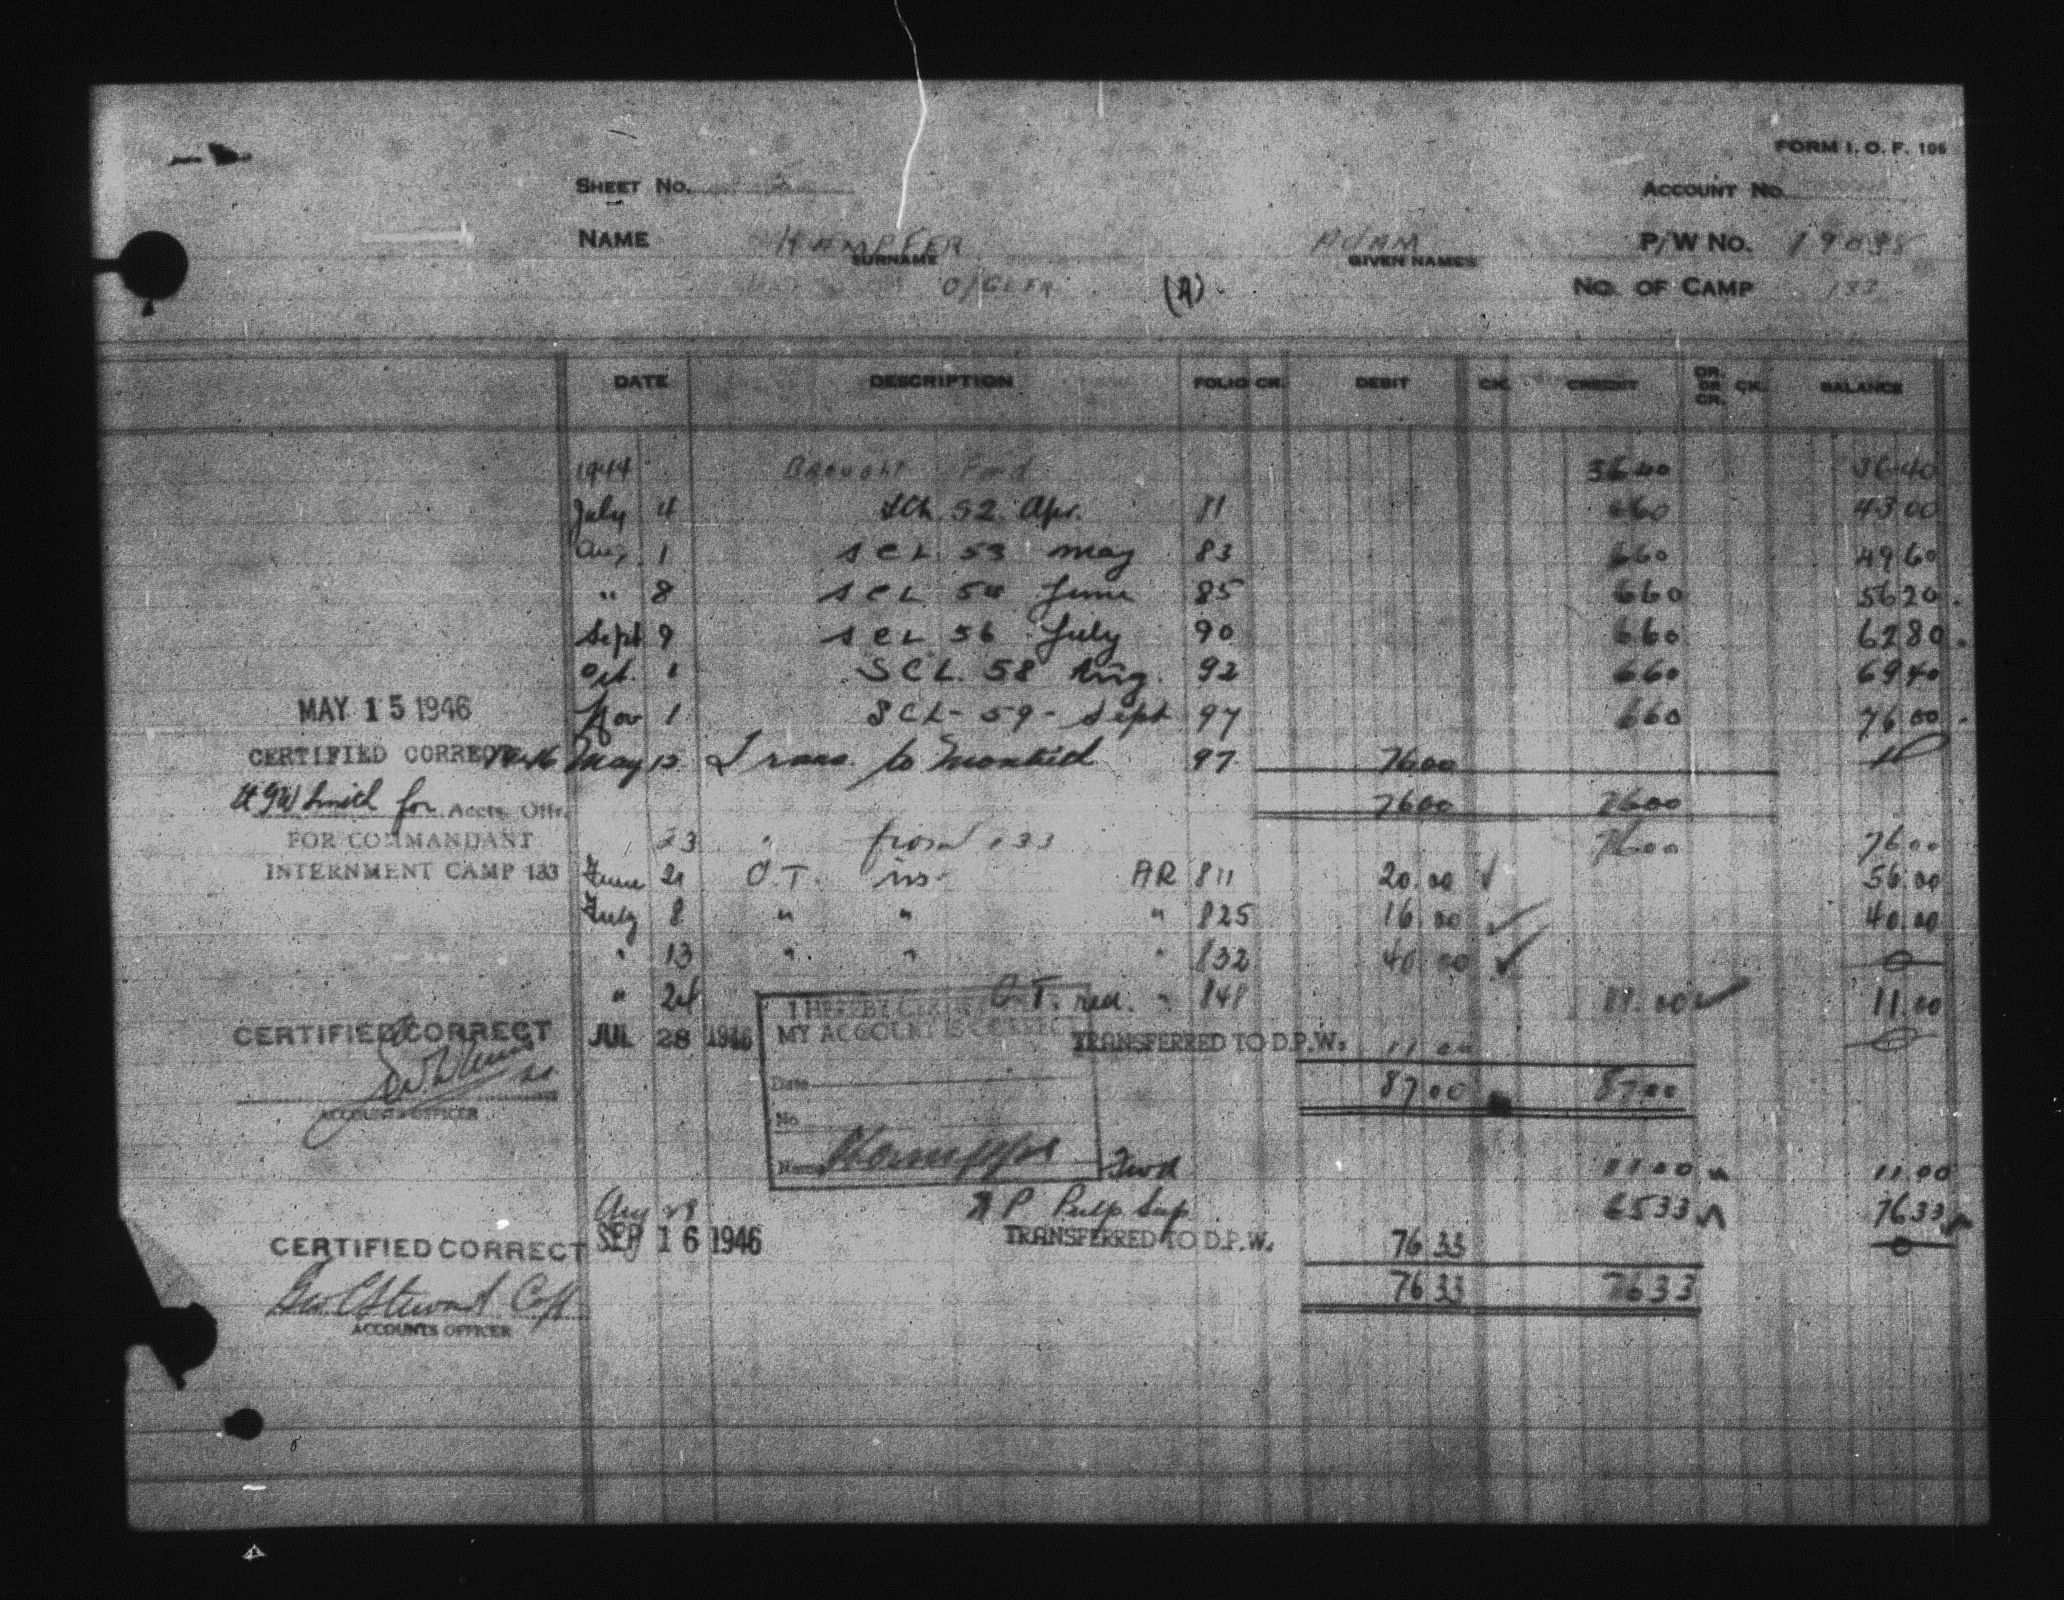 FORM I. O. F. 106
SHEET No. 2 ACCOUNT No.
NAME KAEMPFER ADAM P/W No.
SURNAME GIVEN NAMES
O/GEFR (A) No. OF CAMP 133
DATE DESCRIPTION FOLIO CR. DEBIT CK. CREDIT DR. OR CR. CK. BALANCE
1944 Brought Ford 36 40 36 40
July 4 SCL 52 Apr. 81 6 60 43 00
Aug 1 SCL 53 May 83 6 60 49 60
" 8 SCL 54 June 85 6 60 56 20
Sept 9 SCL 56 July 90 6 60 62 80
Oct. 1 SCL. 58 Aug. 92 6 60 69 40
MAY 15 1946
Nov 1 SCL - 59 - Sept 97 6 60 76 00
CERTIFIED CORRECT
1946 May 15 Trans. to 97 76 00
Smith for Accts. Offr. 76 00 76 00
FOR COMMANDANT
23 " from 133 76 00 76 00
INTERNMENT CAMP 133
June 21 C.T. iss AR 811 20.00 56.00
July 8 " " " 825 16.00 40.00
" 13 " " " 832 40.00 0
" 24 C.T. red. " 848 11.00 11.00
I HEREBY CERTIFY THAT
MY ACCOUNT IS CORRECT
CERTIFIED CORRECT JUL 28 1946 TRANSFERRED TO D.P.W. 11 00 0
Date
87.00 87.00
ACCOUNTS OFFICER
No.
Name Kaempfer Fwd 11.00 11.00
Aug 28 A P Pulp Sup 65 33 76 33
CERTIFIED CORRECT SEP 16 1946 TRANSFERRED TO D.P.W. 76 33 0
Geo C Steward Capt 76 33 76 33
ACCOUNTS OFFICER